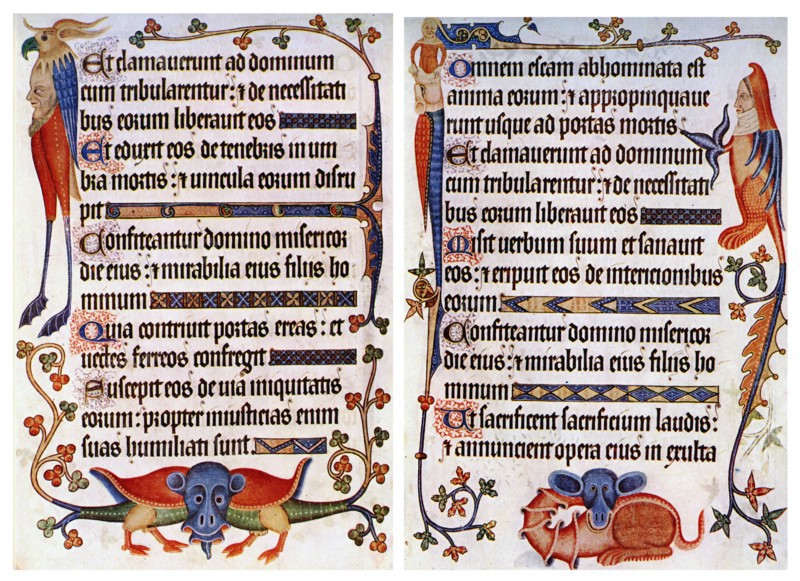 Et clamauerunt ad dominum
cum tribularentur: ⁊ de necessitati
bus eorum liberauit eos
Et eduxit eos de tenebris in um
bra mortis: ⁊ uincula eorum disru
pit
Confiteantur domino misericor
die eius: ⁊ mirabilia eius filiis ho
minum
Quia contriuit portas ereas: et
uectes ferreos confregit
Suscepit eos de uia iniquitatis
eorum: propter iniusticias enim
suas humiliati sunt
Omnem escam abhominata est
anima eorum: ⁊ appropinquaue
runt usque ad portas mortis
Et clamauerunt ad dominum
cum tribularentur: ⁊ de necessitati
bus eorum liberauit eos
Misit uerbum suum et sanauit
eos: ⁊ eripuit eos de intericionibus
eorum
Confiteantur domino misericor
die eius: ⁊ mirabilia eius filiis ho
minum
Ut sacrificent sacrificium laudis:
⁊ annuncient opera eius in exulta